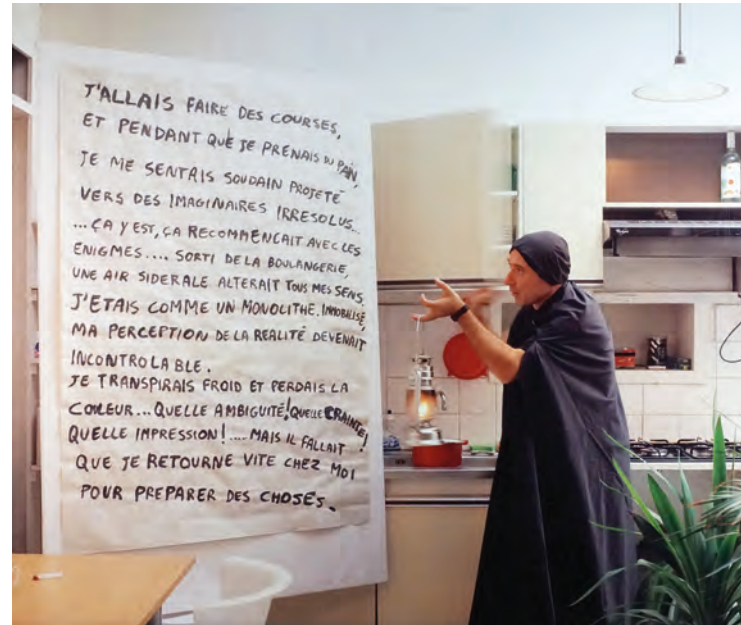 J'ALLAIS FAIRE DES COURSES,
ET PENDANT QUE JE PRENAIS DU PAIN,
JE ME SENTAIS SOUDAIN PROJETÉ
VERS DES IMAGINAIRES IRRESOLUS...
...ÇA Y EST, ÇA RECOMMENCAIT AVEC LES
ENIGMES.... SORTI DE LA BOULANGERIE,
UNE AIR SIDERALE ALTERAIT TOUS MES SENS.
J'ETAIS COMME UN MONOLITHE. IMMOBILISÉ,
MA PERCEPTION DE LA REALITÉ DEVENAIT
INCONTROLABLE.
JE TRANSPIRAIS FROID ET PERDAIS LA
COULEUR... QUELLE AMBIGUITÉ! QUELLE CRAINTE!
QUELLE IMPRESSION!.... MAIS IL FALLAIT
QUE JE RETOURNE VITE CHEZ MOI
POUR PREPARER DES CHOSES.